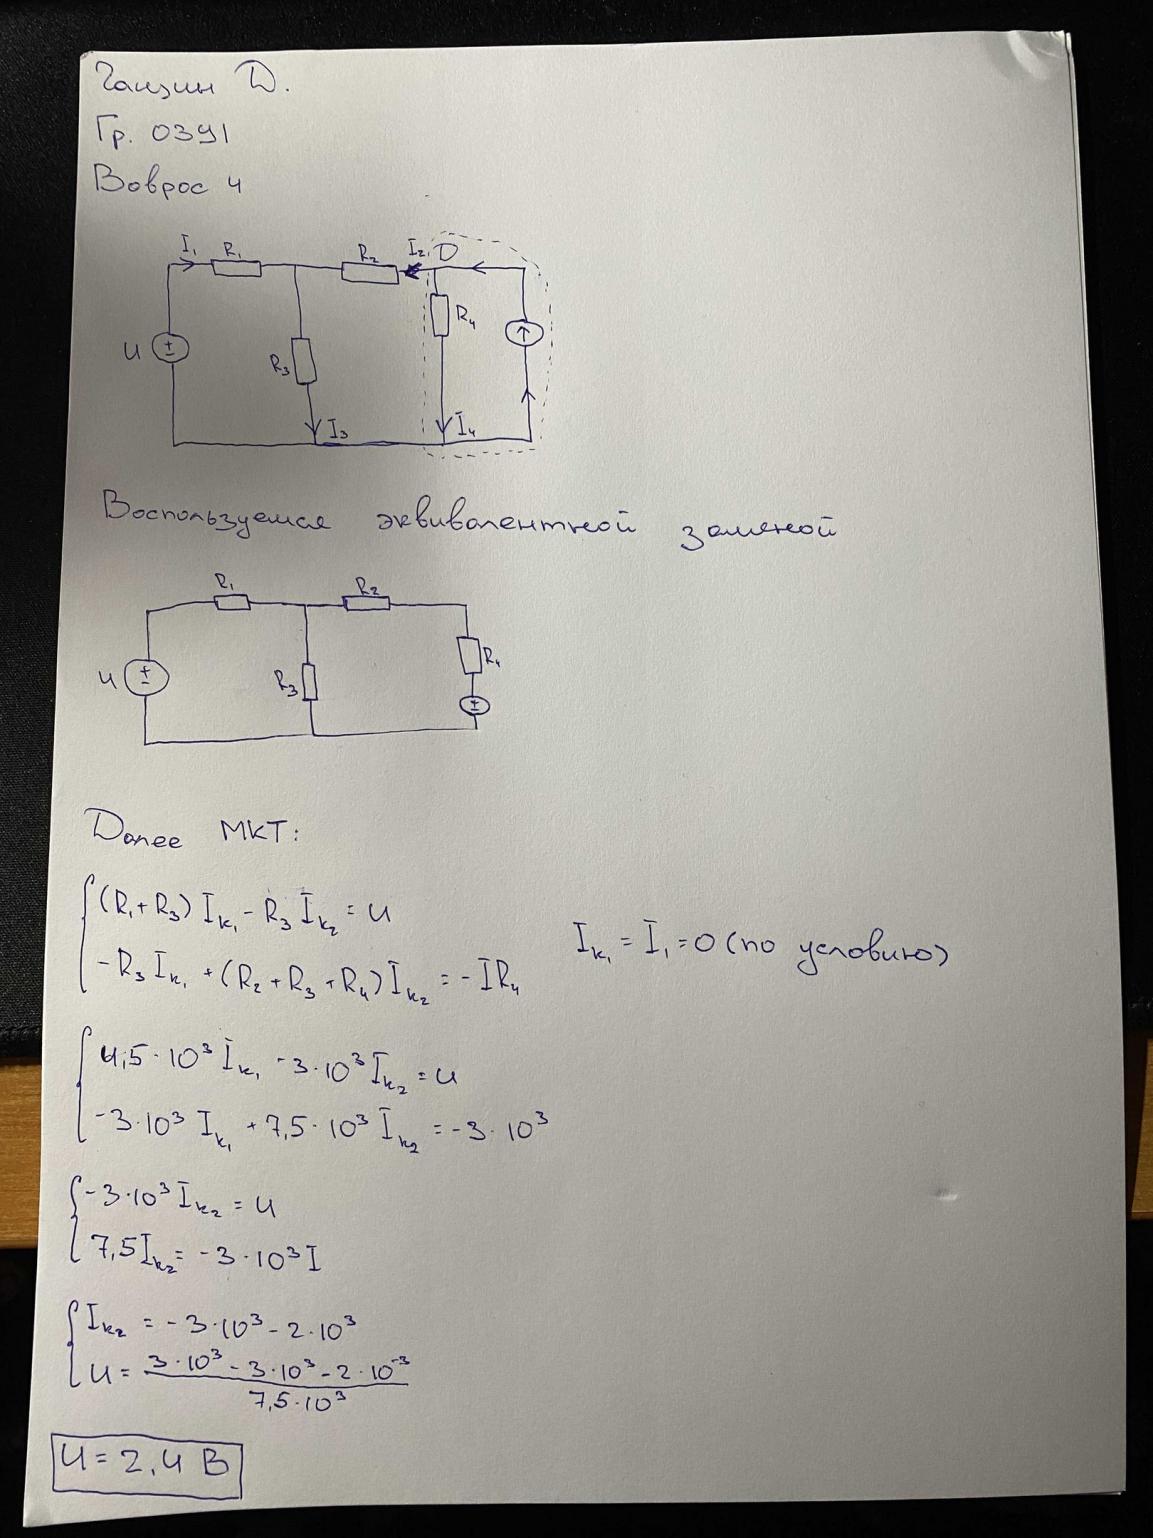 Ганзин D.
Гр. 0391
Воврос 4
I₁ R₁ R₂ I₂ D
U ± R₃ R₄
I₃ I₄
Воспользуемся эквивалентной заменой
R₁ R₂
U ± R₃ R₄ ±
Далее МКТ:
(R₁+R₃) Iк₁ - R₃ Iк₂ = U
-R₃ Iк₁ + (R₂+R₃+R₄) Iк₂ = -IR₄
Iк₁ = I₁ = 0 (по условию)
4,5·10³ Iк₁ - 3·10³ Iк₂ = U
-3·10³ Iк₁ + 7,5·10³ Iк₂ = -3·10³
-3·10³ Iк₂ = U
7,5Iк₂ = -3·10³I
Iк₂ = -3·10³ - 2·10³
U = 3·10³ - 3·10³ - 2·10⁻³
7,5·10³
U = 2,4 В